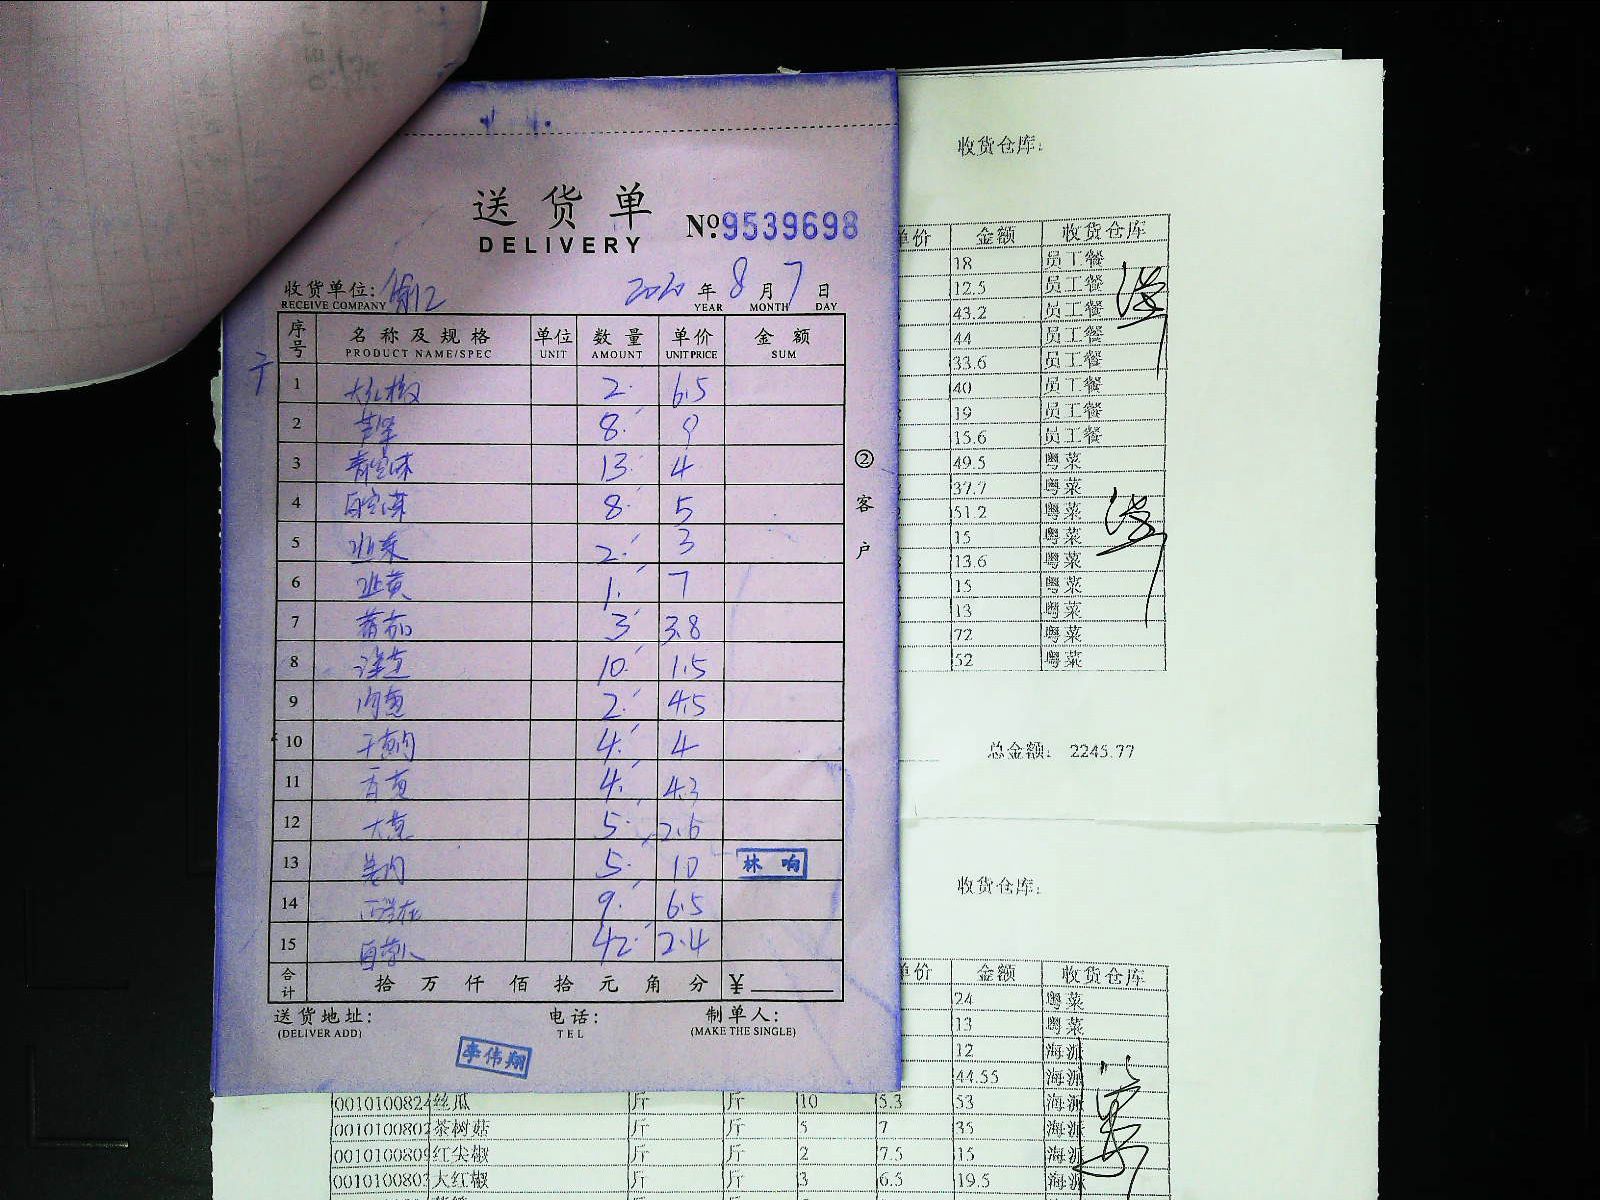 送货单
DELIVERY
№9539698
收货单位:
RECEIVE COMPANY
2020年8月7日
YEAR MONTH DAY
序号 名称及规格 单位 数量 单价 金额
PRODUCT NAME/SPEC UNIT AMOUNT UNIT PRICE SUM
1 大红椒 2 6.5
2 芦笋 8 9
3 13 4
4 8 5
5 韭菜 2 3
6 韭黄 1 7
7 蕃茄 3 3.8
8 10 1.5
9 肉葱 2 4.5
10 干葱肉 4 4
11 4 4.3
12 5 2.6
13 姜肉 5 10
林响
14 9 6.5
15 42 2.4
合计 拾万仟佰拾元角分 ¥
送货地址: 电话: 制单人:
(DELIVER ADD) TEL (MAKE THE SINGLE)
李伟翔
②客户
收货仓库:
单价 金额 收货仓库
18 员工餐
12.5 员工餐
43.2 员工餐
44 员工餐
33.6 员工餐
40 员工餐
19 员工餐
15.6 员工餐
49.5 粤菜
37.7 粤菜
51.2 粤菜
15 粤菜
13.6 粤菜
15 粤菜
13 粤菜
72 粤菜
52 粤菜
总金额: 2245.77
收货仓库:
单价 金额 收货仓库
24 粤菜
13 粤菜
12 海派
44.55 海派
0010100824 丝瓜 斤 斤 10 5.3 53 海派
0010100802 茶树菇 斤 斤 5 7 35 海派
0010100809 红尖椒 斤 斤 2 7.5 15 海派
0010100803 大红椒 斤 斤 3 6.5 19.5 海派